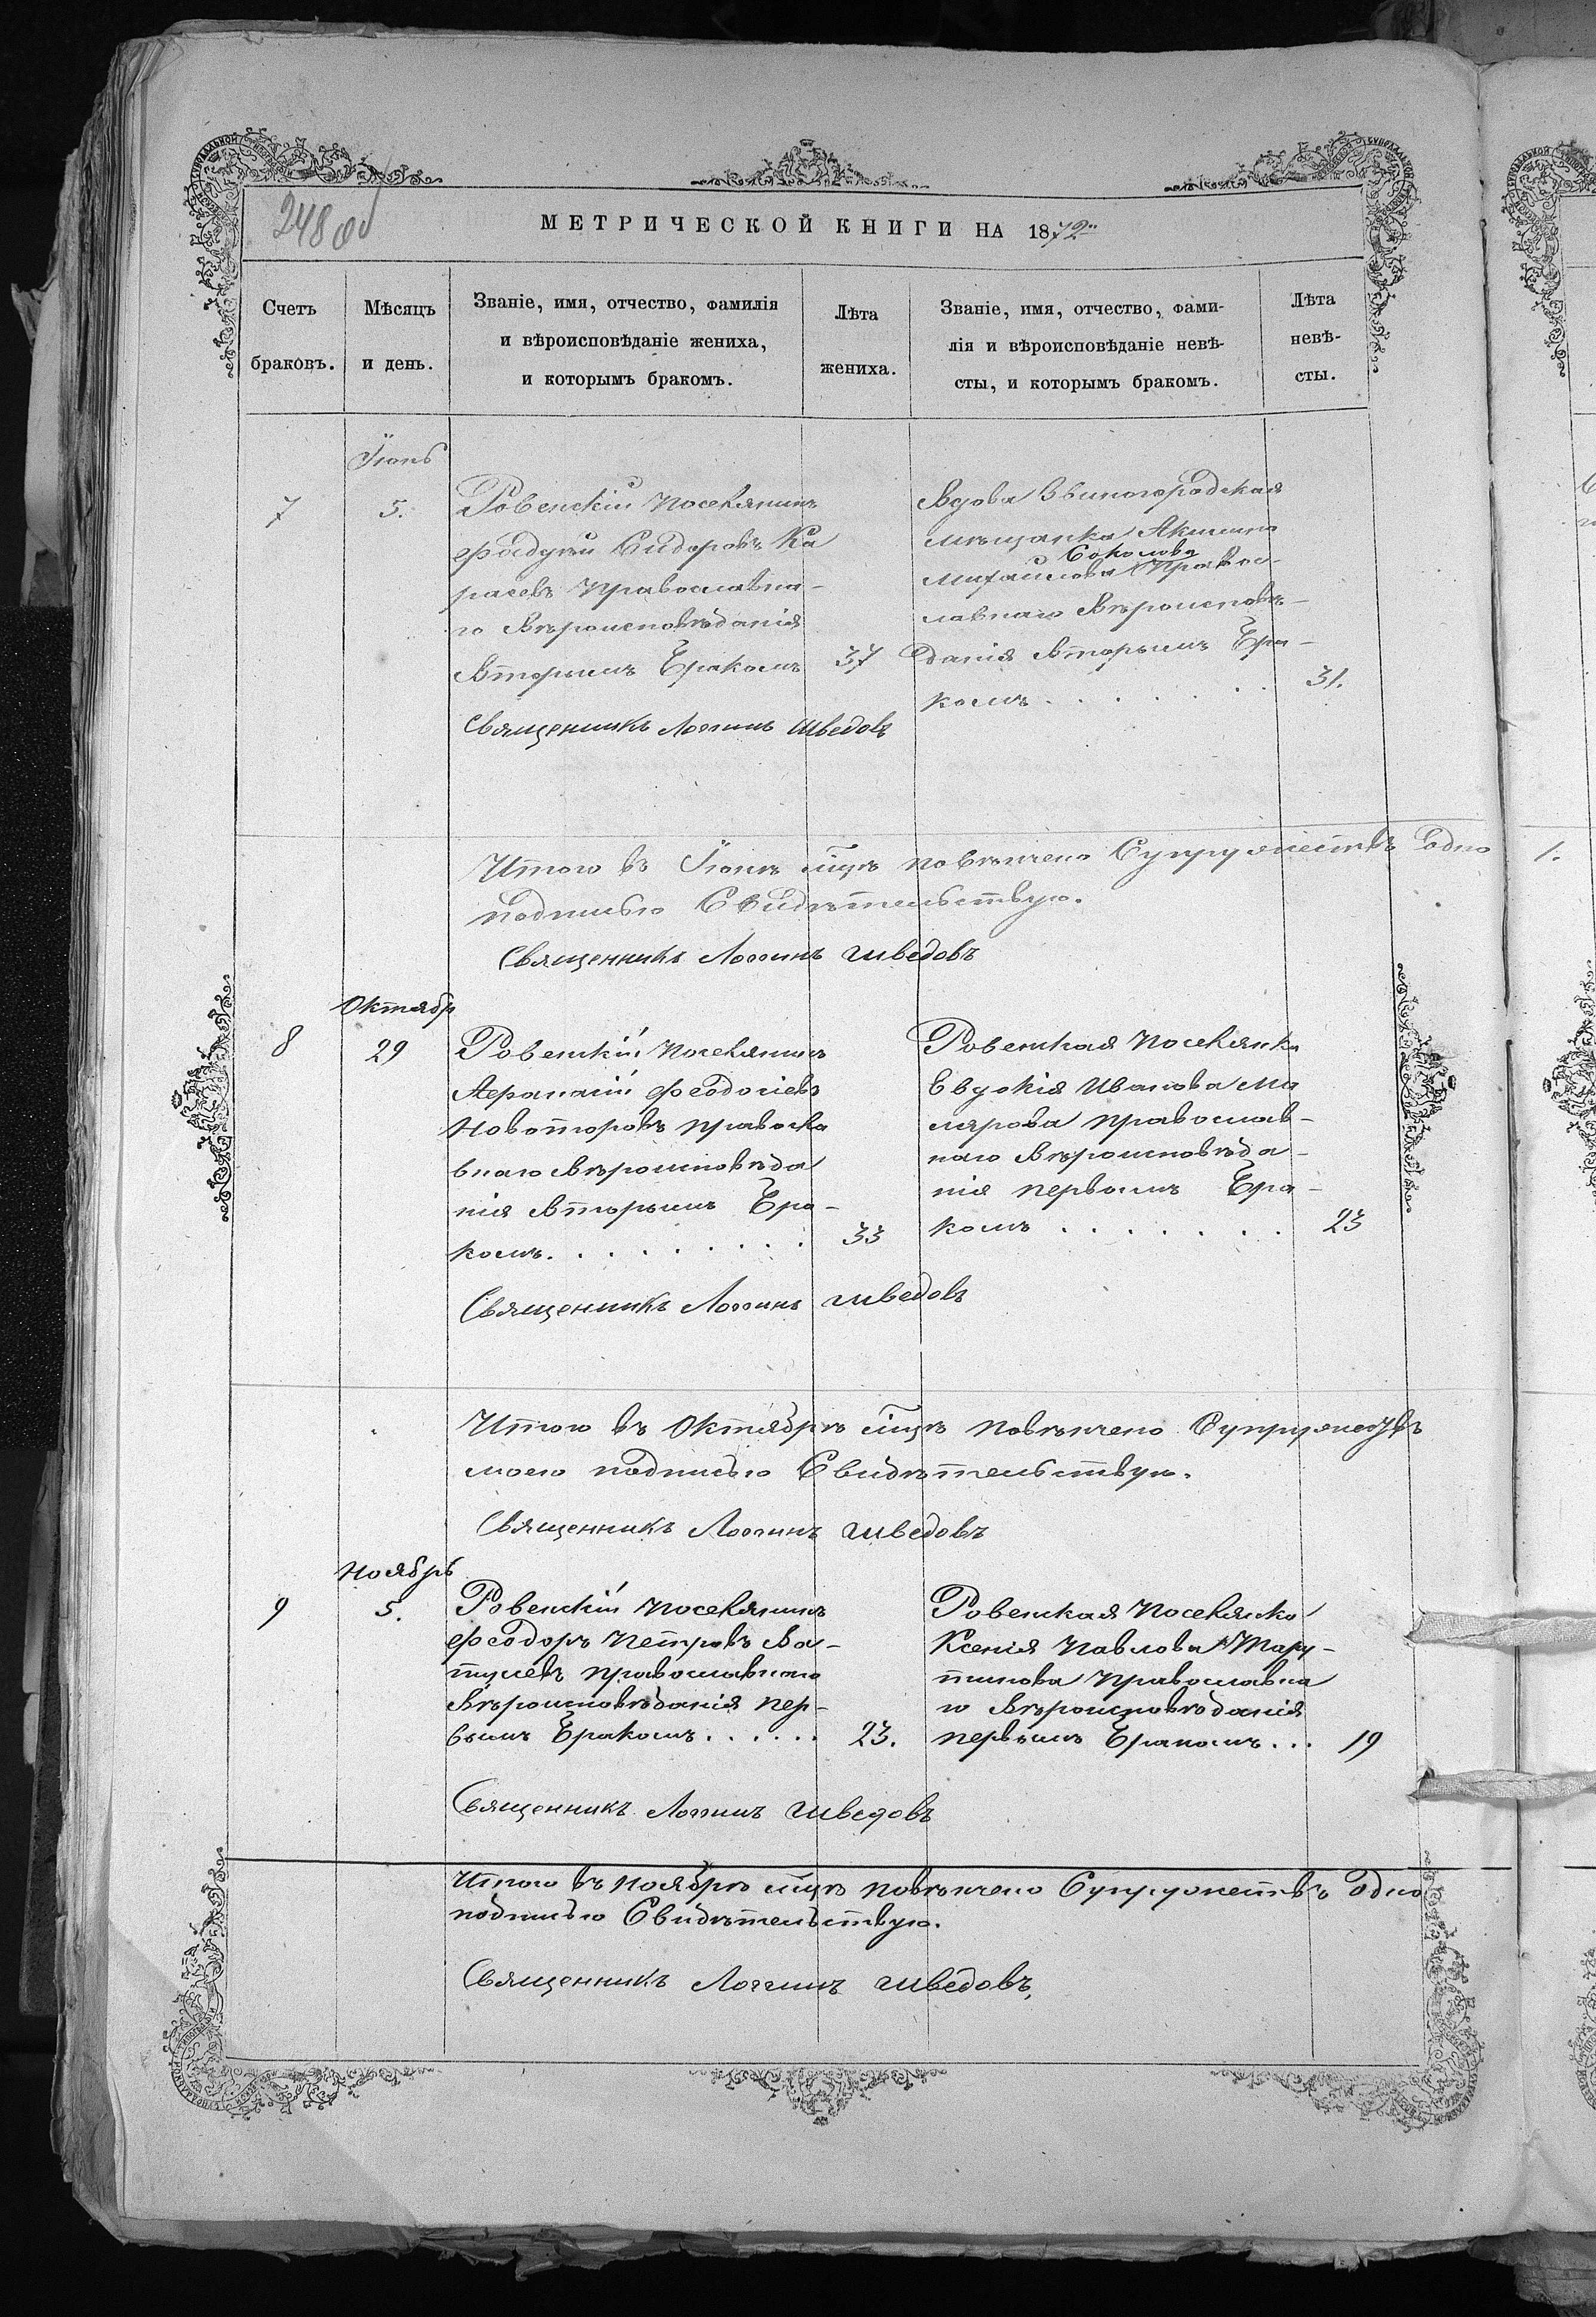 248 об
МЕТРИЧЕСКОЙ КНИГИ НА 1872
Счетъ браковъ.
Мѣсяцъ и день.
Званіе, имя, отчество, фамилія
и вѣроисповѣданіе жениха,
и которымъ бракомъ.
Лѣта
жениха.
Званіе, имя, отчество, фами-
лія и вѣроисповѣданіе невѣ-
сты, и которымъ бракомъ.
Лѣта
невѣ-
сты.
Іюнь
7
5.
Ровенскій поселянинъ
Сидоровъ Ка
расевъ православна-
го вѣроисповѣданія
вторымъ бракомъ 37
Священникъ Логгинъ Шведовъ
Вдова Звиногородская
мѣщанка Акилина
Соколова
Михайлова Правос-
лавнаго вѣроисповѣ-
данія вторымъ бра-
комъ . . . . . . . 31.
Итого въ Іюнѣ мцѣ повѣнчано Супружествъ одно 1.
подписью Свидѣтельствую.
Священникъ Логгинъ Шведовъ
Октябр
8
29
Ровенскій поселянинъ
Афанасій Феодосіевъ
Новоторовъ правосла
внаго вѣроисповѣда
нія вторымъ бра-
комъ. . . . . . . . 33
Священникъ Логгинъ Шведовъ
Ровенская поселянка
Евдокія Иванова Ма
лярова православ-
наго вѣроисповѣда-
нія первымъ бра-
комъ . . . . . . . 23
Итого въ Октябрѣ мцѣ повѣнчано Супружествъ
моею подписью Свидѣтельствую.
Священникъ Логгинъ Шведовъ
Ноябрь
9
5.
Ровенскій поселянинъ
Феодоръ Петровъ Ва-
тулевъ православнаго
вѣроисповѣданія пер-
вымъ бракомъ. . . . . . 23.
Ровенская поселянка
Ксенія Павлова Мару-
тинова православна
го вѣроисповѣданія
первымъ бракомъ . . . 19
Священникъ Логгинъ Шведовъ
Итого въ Ноябрѣ мцѣ повѣнчано Супружествъ одно
подписью Свидѣтельствую.
Священникъ Логгинъ Шведовъ,